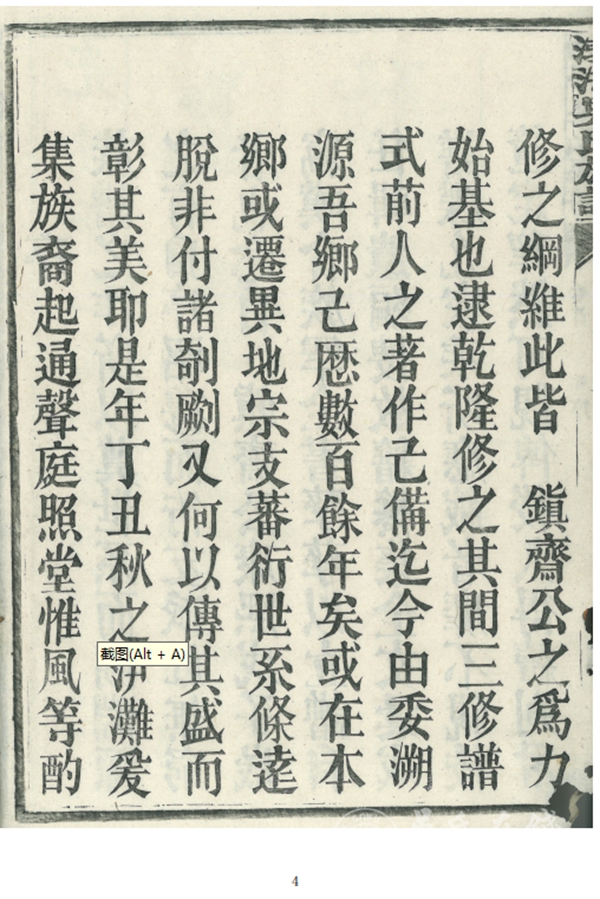 修之綱維此皆　鎮齋公之爲力
始基也逮乾隆修之其間三修譜
式前人之著作己備迄今由委溯
源吾鄉己厯數百餘年矣或在本
鄉或遷異地宗支蕃衍世系條達
脫非付諸剞劂又何以傳其盛而
彰其美耶是年丁丑秋之灘爰
集族裔起通聲庭照堂惟風等酌
截图(Alt + A)
4